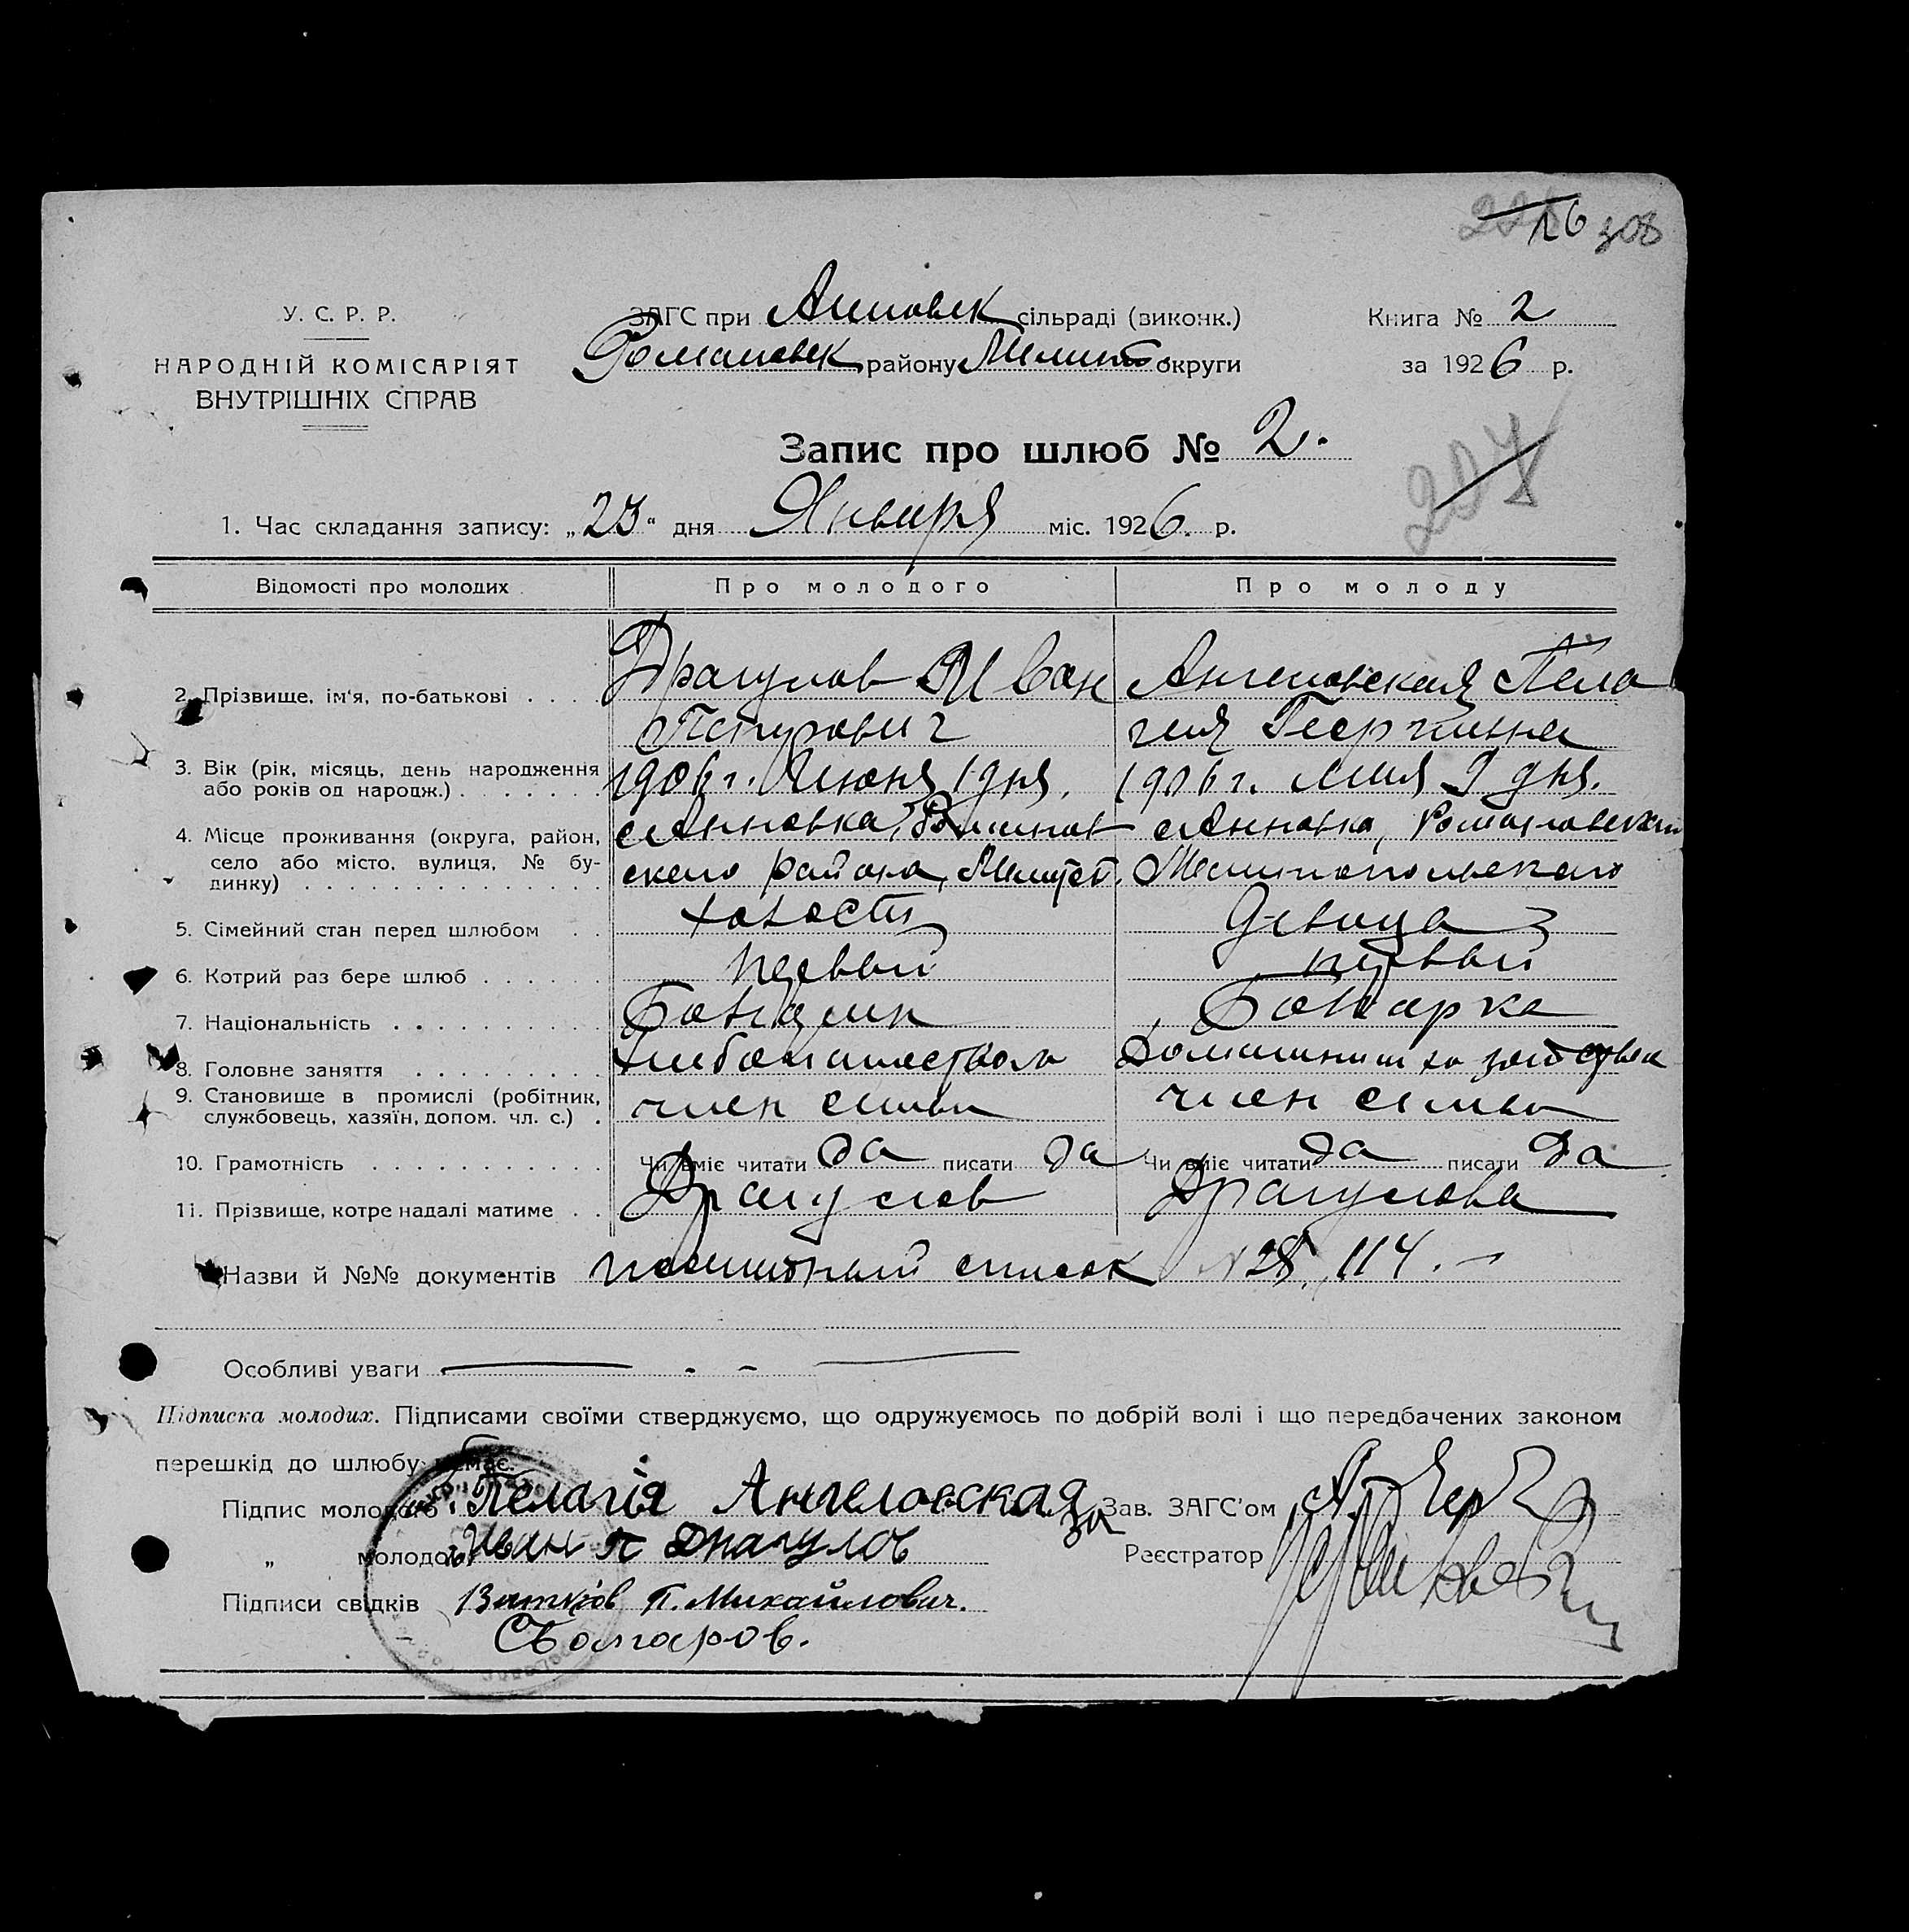 16 308
У. С. Р. Р.
НАРОДНІЙ КОМІСАРІЯТ
ВНУТРІШНІХ СПРАВ
ЗАГС при Анновск сільраді (виконк.)
Романовск району Мелит округи
Книга № 2
за 1926 р.
Запис про шлюб № 2.
207
1. Час складання запису: „23“ дня Января міс. 1926. р.
Відомості про молодих Про молодого Про молоду
2. Прізвище, ім'я, по-батькові . . . . Драгулов Иван Ангеловская Пела
Петрович гия Георгиевна
3. Вік (рік, місяць, день народження 1906 г. Июня 1 дня. 1906 г. Мая 9 дня.
або років од народж.) . . . . . . .
4. Місце проживання (округа, район, с Анновка, Романов с Анновка, Романовского
село або місто, вулиця, № бу- ского района, Мелитоп. Мелитопольского
динку) . . . . . . . . . . . . . .
5. Сімейний стан перед шлюбом . . холост девица
6. Котрий раз бере шлюб . . . . . . первый первый
7. Національність . . . . . . . . . . Болгарин Болгарка
8. Головне заняття . . . . . . . . . Хлебопашество Домашним хозяйством
9. Становище в промислі (робітник, член семьи член семьи
службовець, хазяїн, допом. чл. с.) .
10. Грамотність . . . . . . . . . . . Чи вміє читати да писати да Чи вміє читати да писати да
11. Прізвище, котре надалі матиме . . Драгулов Драгулова
Назви й №№ документів посемейный список № 28, 114. —
Особливі уваги
Підписка молодих. Підписами своїми стверджуємо, що одружуємось по добрій волі і що передбачених законом
перешкід до шлюбу немає.
Підпис молодого Пелагія Ангеловская Зав. ЗАГС'ом
„ молодої Иван П Драгулов за Реєстратор
Підписи свідків П. Михайлович.
С Болгаров.